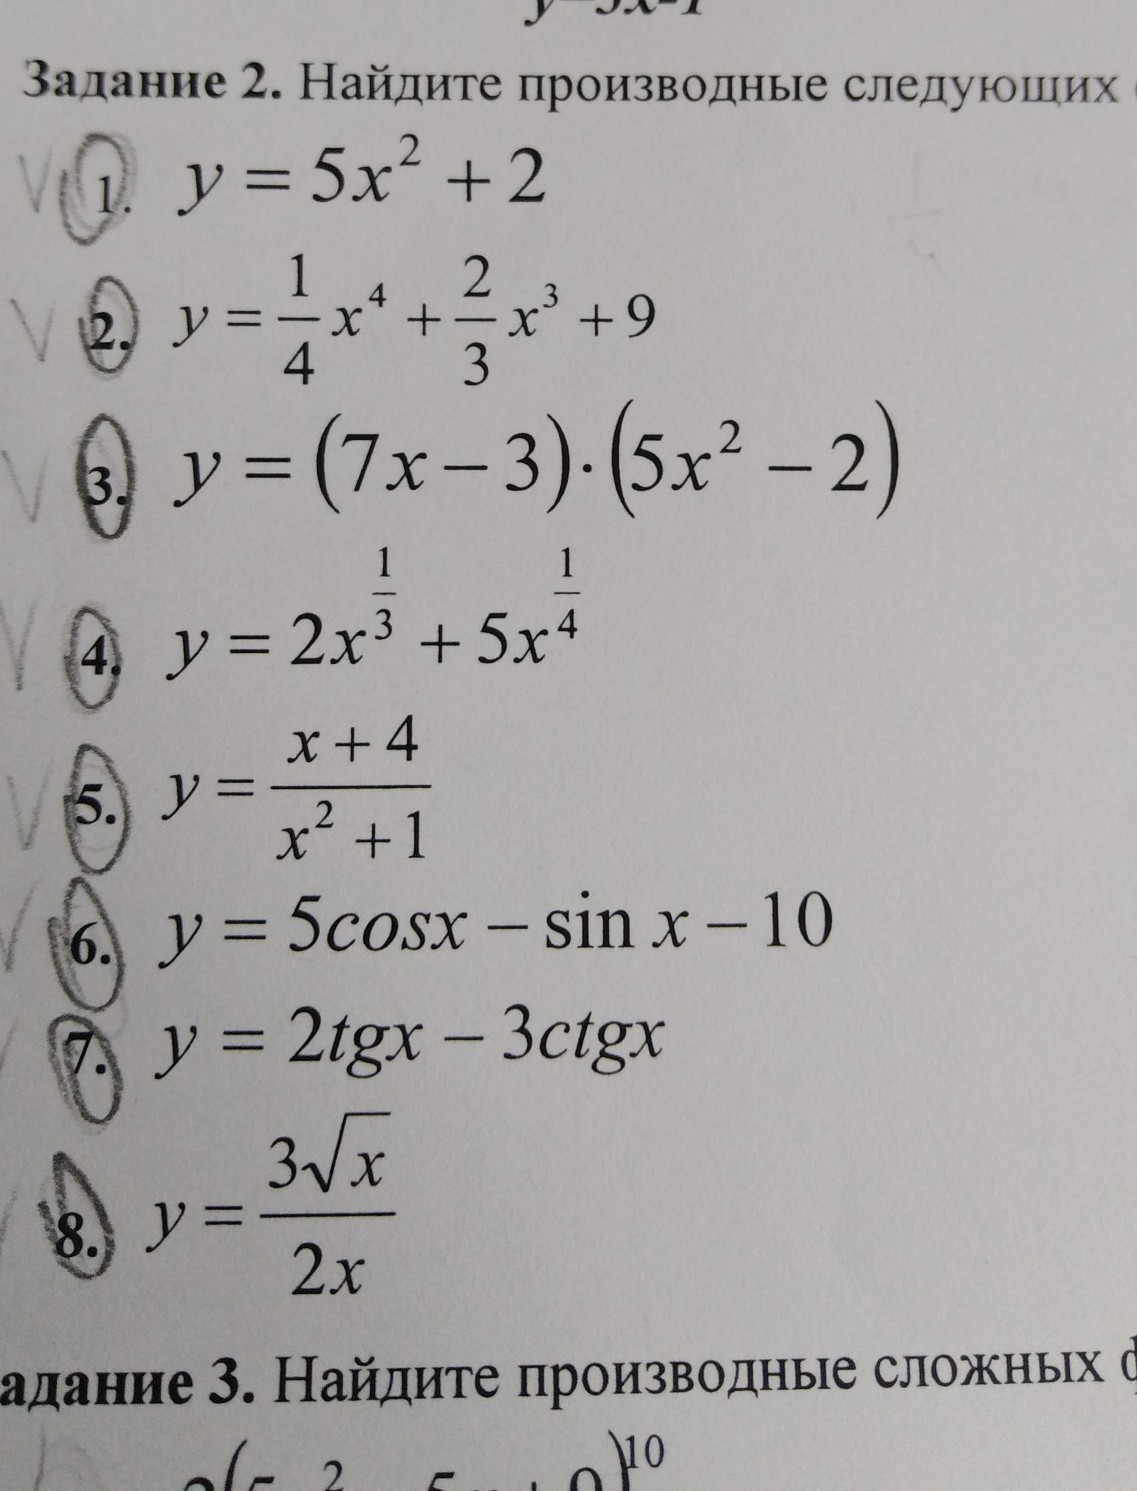 y=5x-1
Задание 2. Найдите производные следующих
1. y = 5x² + 2
2. y = 1/4 x⁴ + 2/3 x³ + 9
3. y = (7x − 3)·(5x² − 2)
4. y = 2x^(1/3) + 5x^(1/4)
5. y = (x + 4)/(x² + 1)
6. y = 5cosx − sin x − 10
7. y = 2tgx − 3ctgx
8. y = 3√x/2x
адание 3. Найдите производные сложных ф